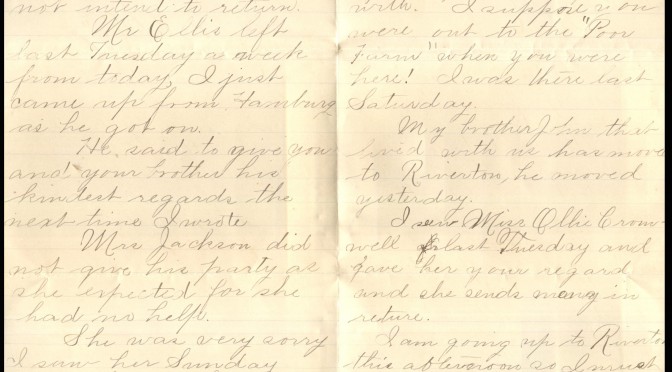 not intend to return.
Mr Ellis left
last Tuesday a week
from today, I just
came up from Hamburg
as he got on.
He said to give you
and your brother his
kindest regards the
next time I wrote
Mrs Jackson did
not give his party as
she expected for she
had no help.
She was very sorry
I saw her Sunday
with. I suppose you
were out to the "Poor
Farm" when you were
here! I was there last
Saturday.
My brother John that
lived with us has moved
to Riverton, he moved
yesterday.
I saw Miss Ollie Crom
well last Tuesday and
gave her your regard
and she sends many in
return.
I am going up to Riverton
this afternoon so I must